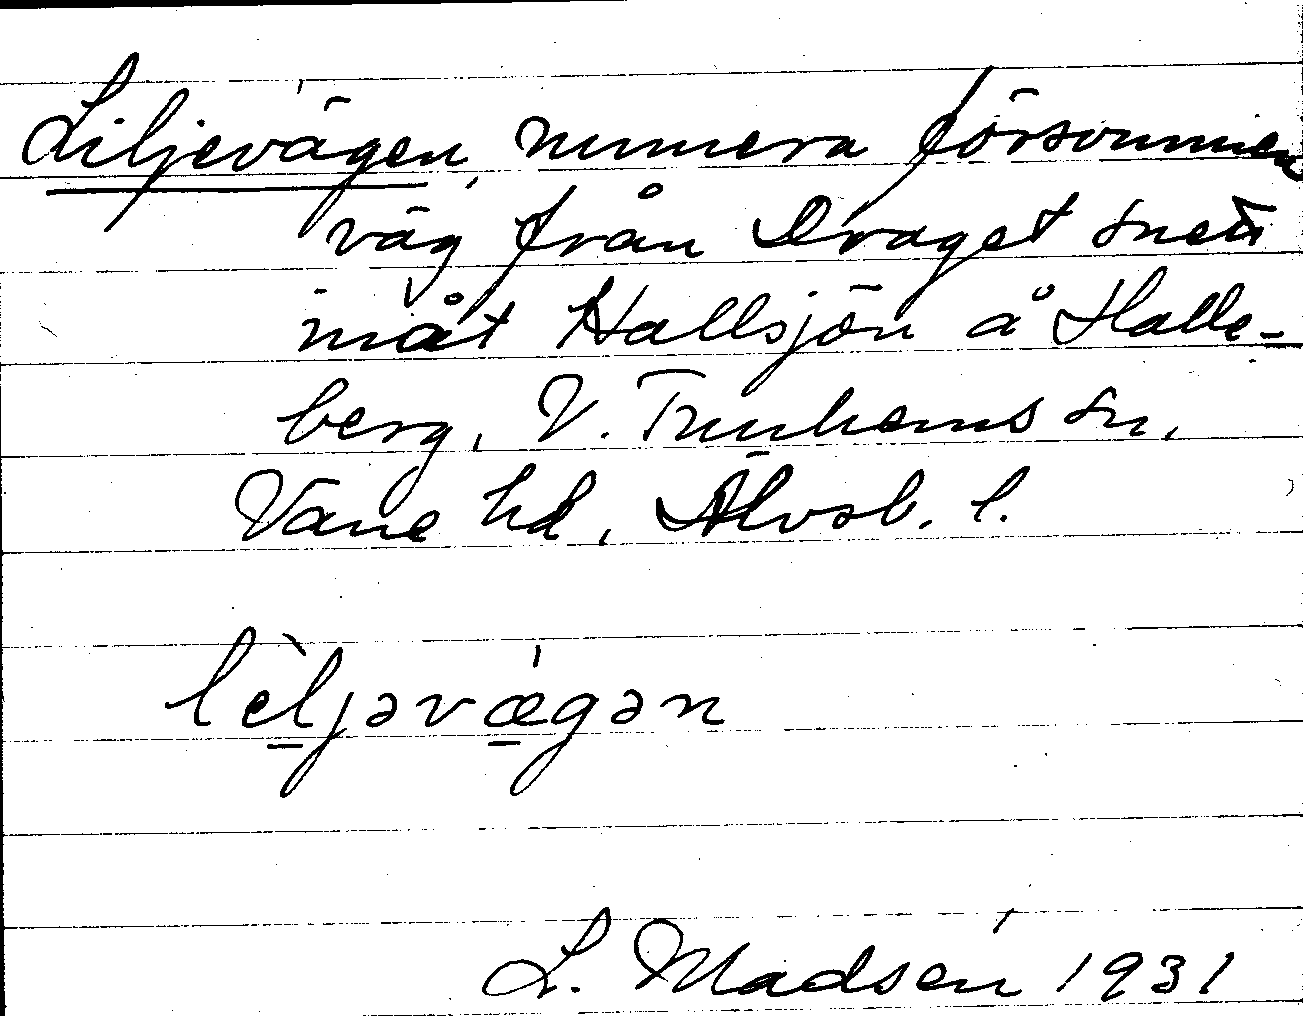 Liljevägen, numera försvunnen
väg från Draget snett
inåt Hallsjön å Halle-
berg, V. Tunhems sn,
Väne hd, Älvsb. l.
lèljəvǽgən
L. Madsén 1931